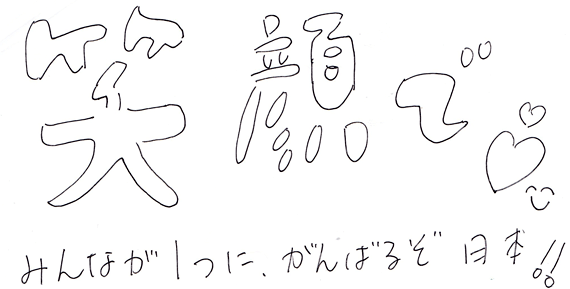 笑顔で
みんなが1つに、がんばるぞ日本!!